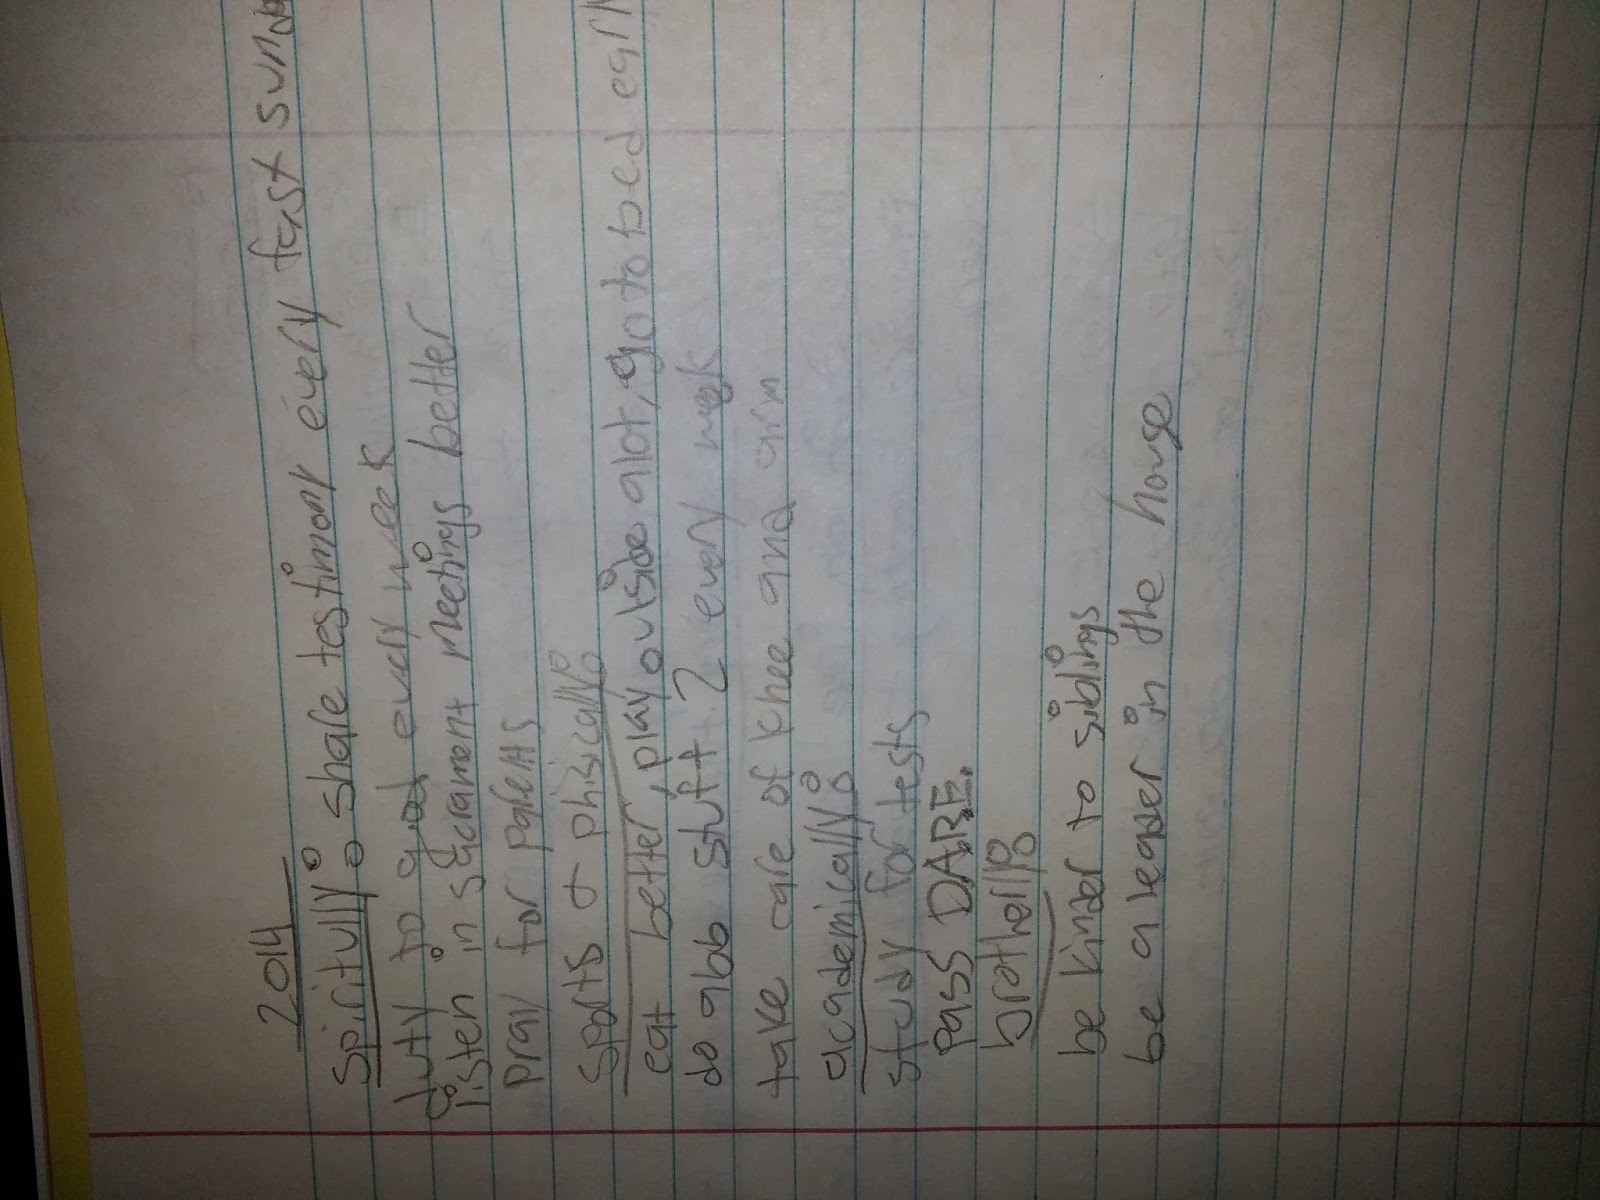 2014
Spiritully: share testimony every fast sunda
duty to god every week
listen in sacrament meetings better
pray for parents
sports & phisically:
eat better, play outside alot, go to bed early
do abb stuff 2 every
take care of knee and arm
academically:
study for tests
PASS DARE.
brotherly:
be kinder to siblings
be a leader in the house